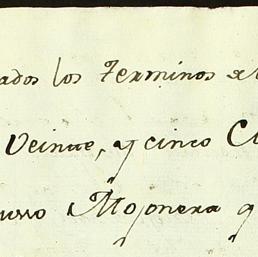 ados los Terminos
Veinte, y cinco
Mojonera q